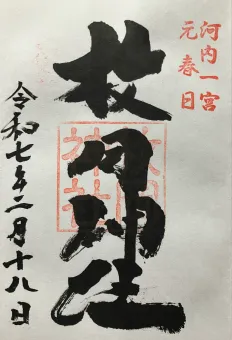 河内一宮
元春日
枚岡神社
令和七年二月十八日